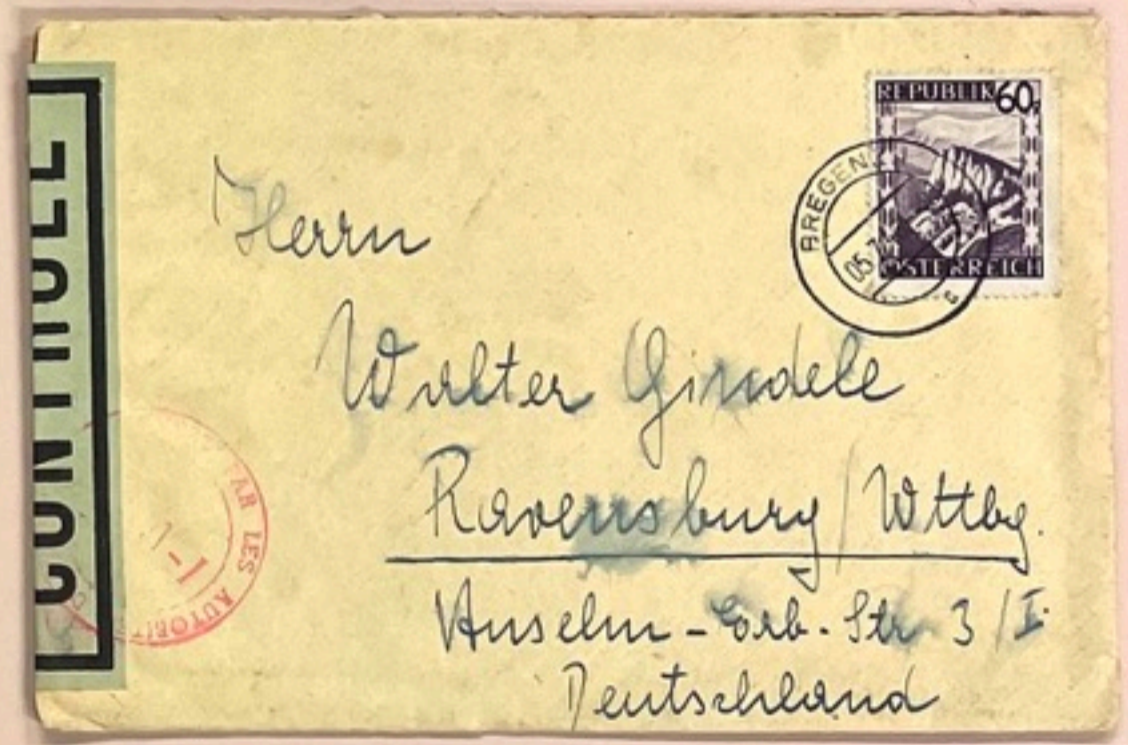 REPUBLIK 60g
ÖSTERREICH
BREGENZ
05.
c
CONTROLE
PAR LES AUTORI
1-1
Herrn
Walter Gindele
Ravensburg / Wttbg.
Anselm-Erb-Str 3 / I.
Deutschland